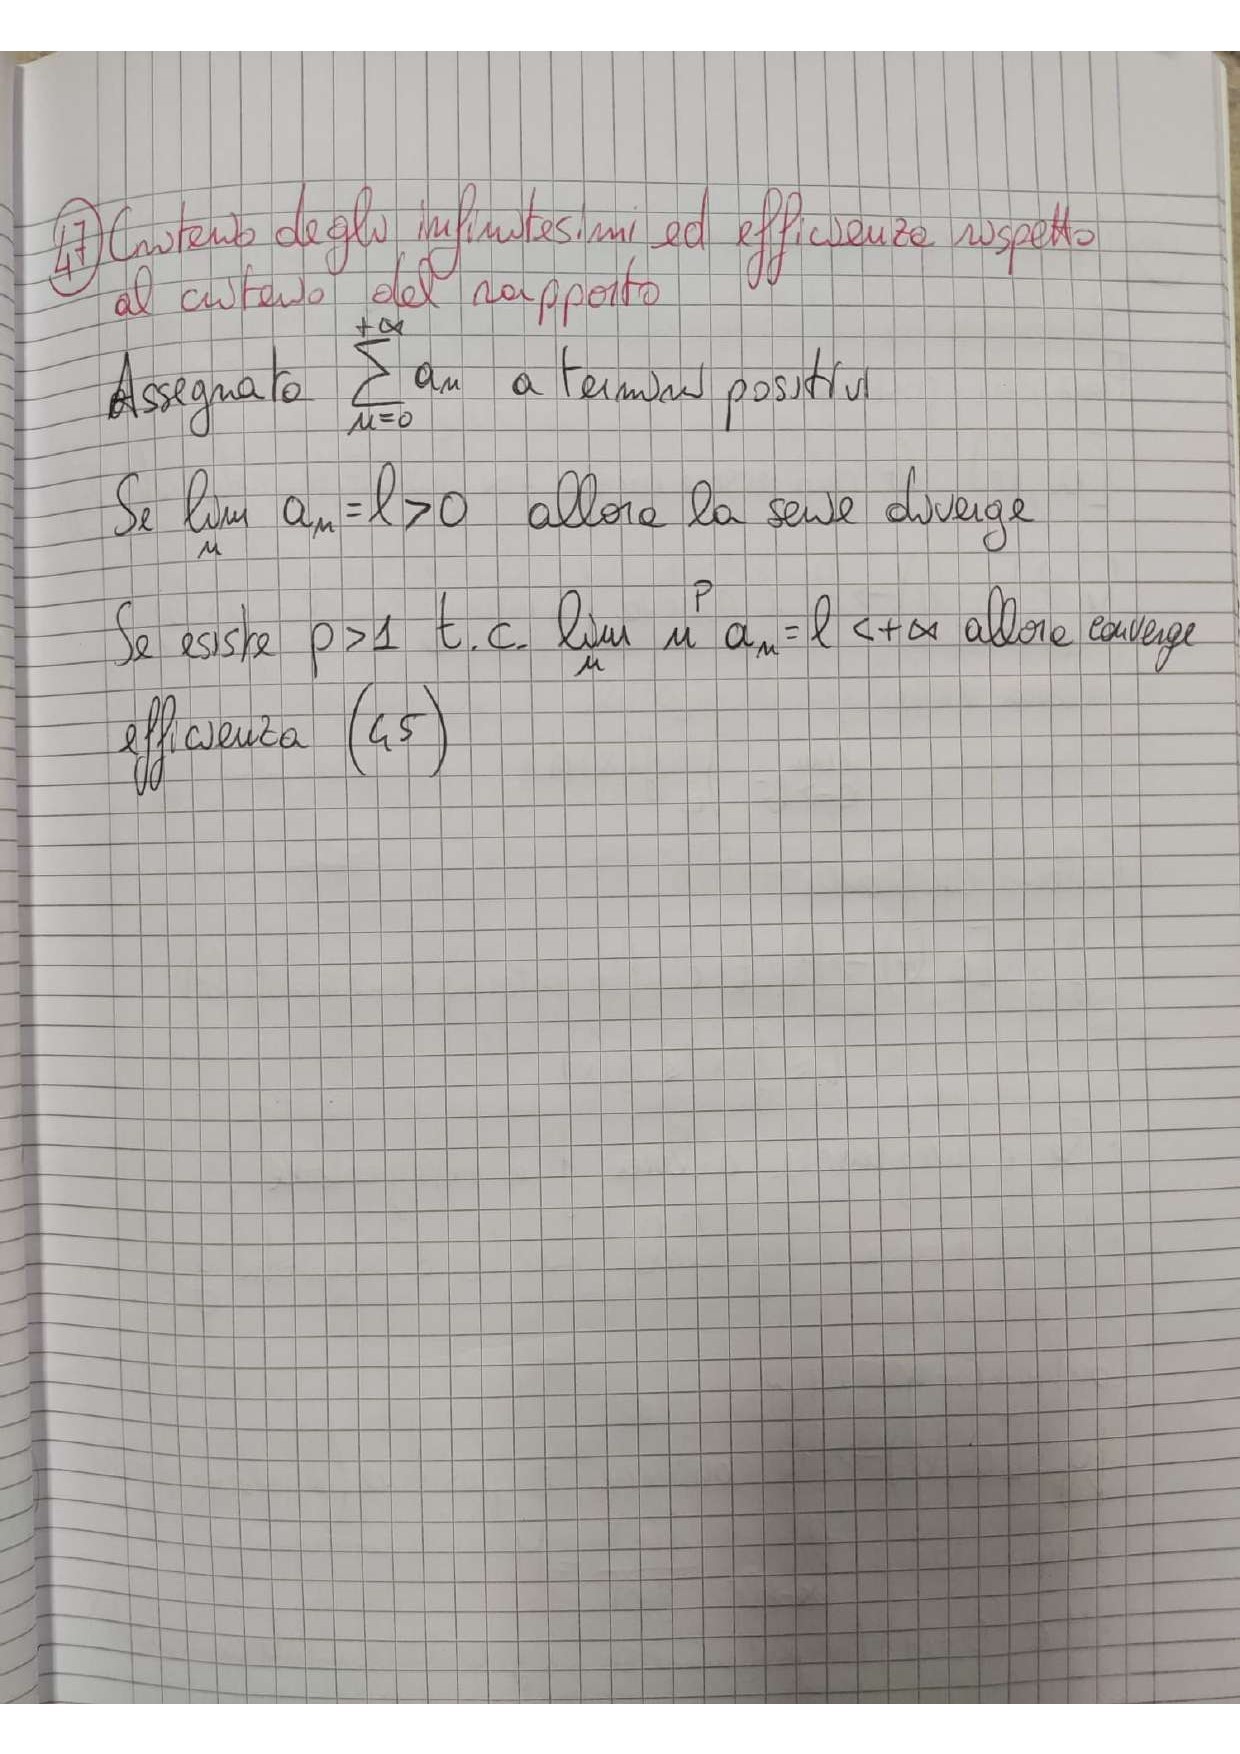 47) Criterio degli infinitesimi ed efficienza rispetto
al criterio del rapporto
+∞
Assegnato ∑ aₙ a termini positivi
n=0
Se lim aₙ = l > 0 allora la serie diverge
n
Se esiste p>1 t.c. lim nᵖ aₙ = l < +∞ allora converge
n
efficienza (45)